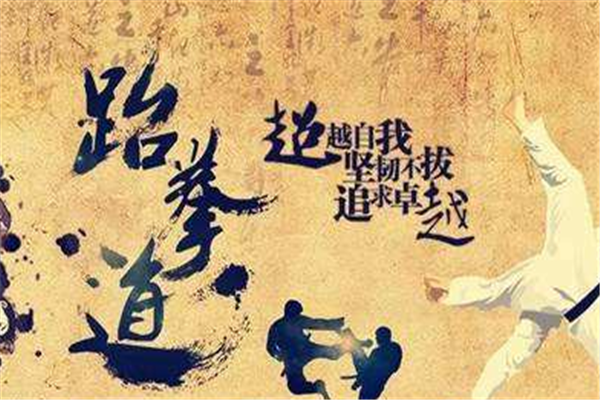 跆拳道
超越自我
坚韧不拔
追求卓越